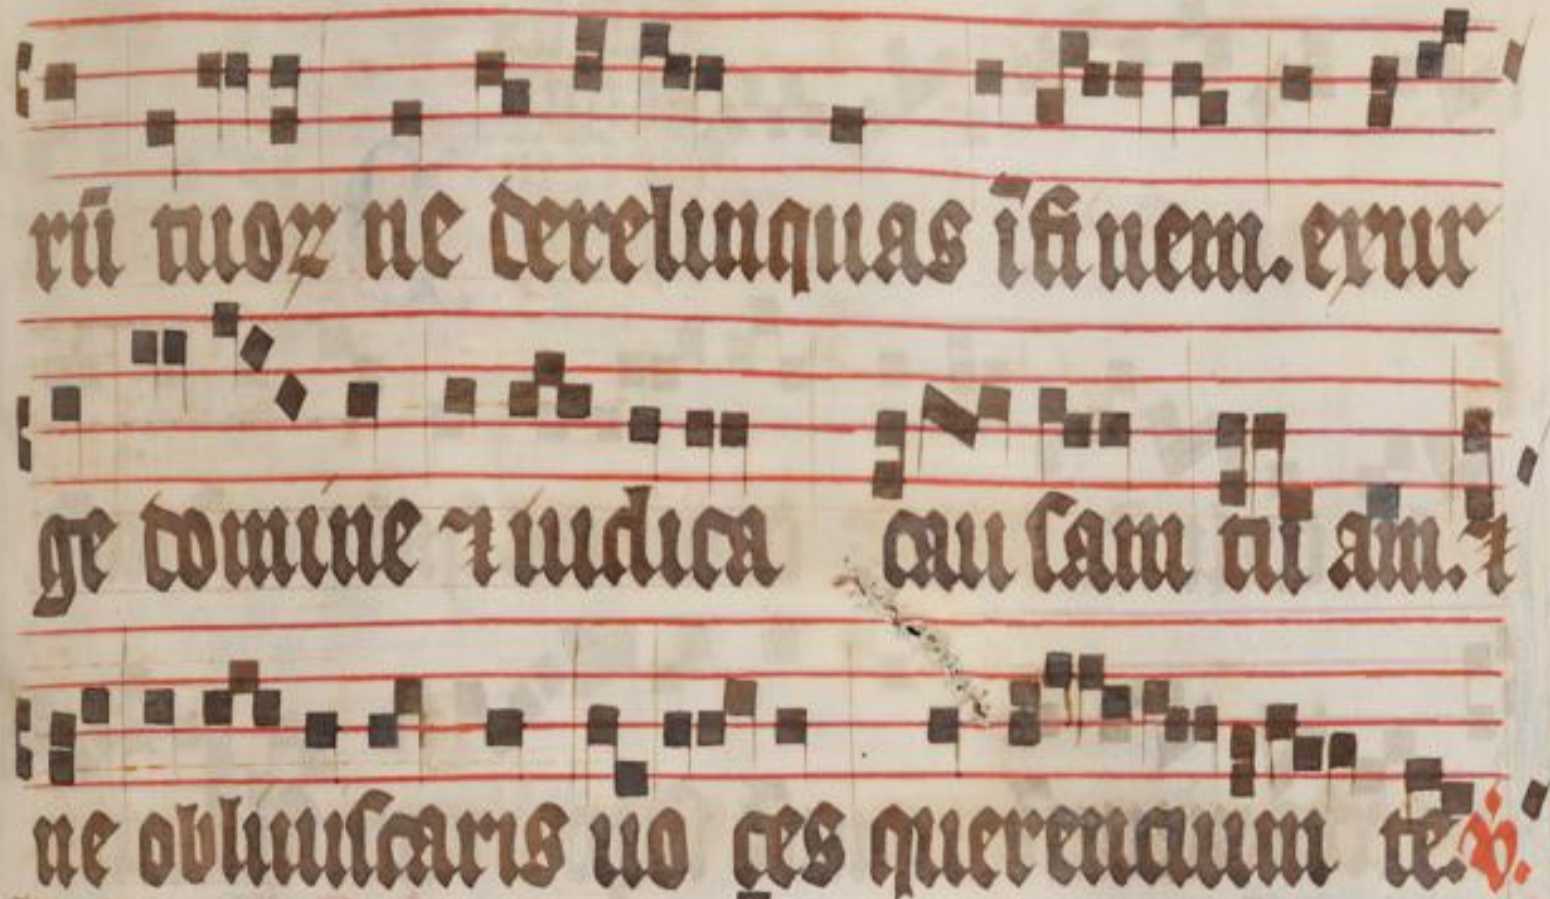 rū tuoꝝ ne derelinquas ī finem. exur
ge domine ⁊ iudica cau sam tu am. ⁊
ne obliuiscaris uo ces querentium te. ℣.